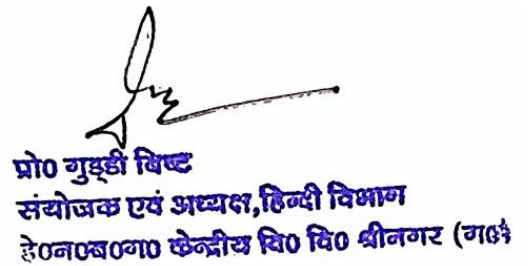 प्रो० गुड्डी बिष्ट
संयोजक एवं अध्यक्ष,हिन्दी विभाग
हे०न०ब०ग० केन्द्रीय वि० वि० श्रीनगर (ग०